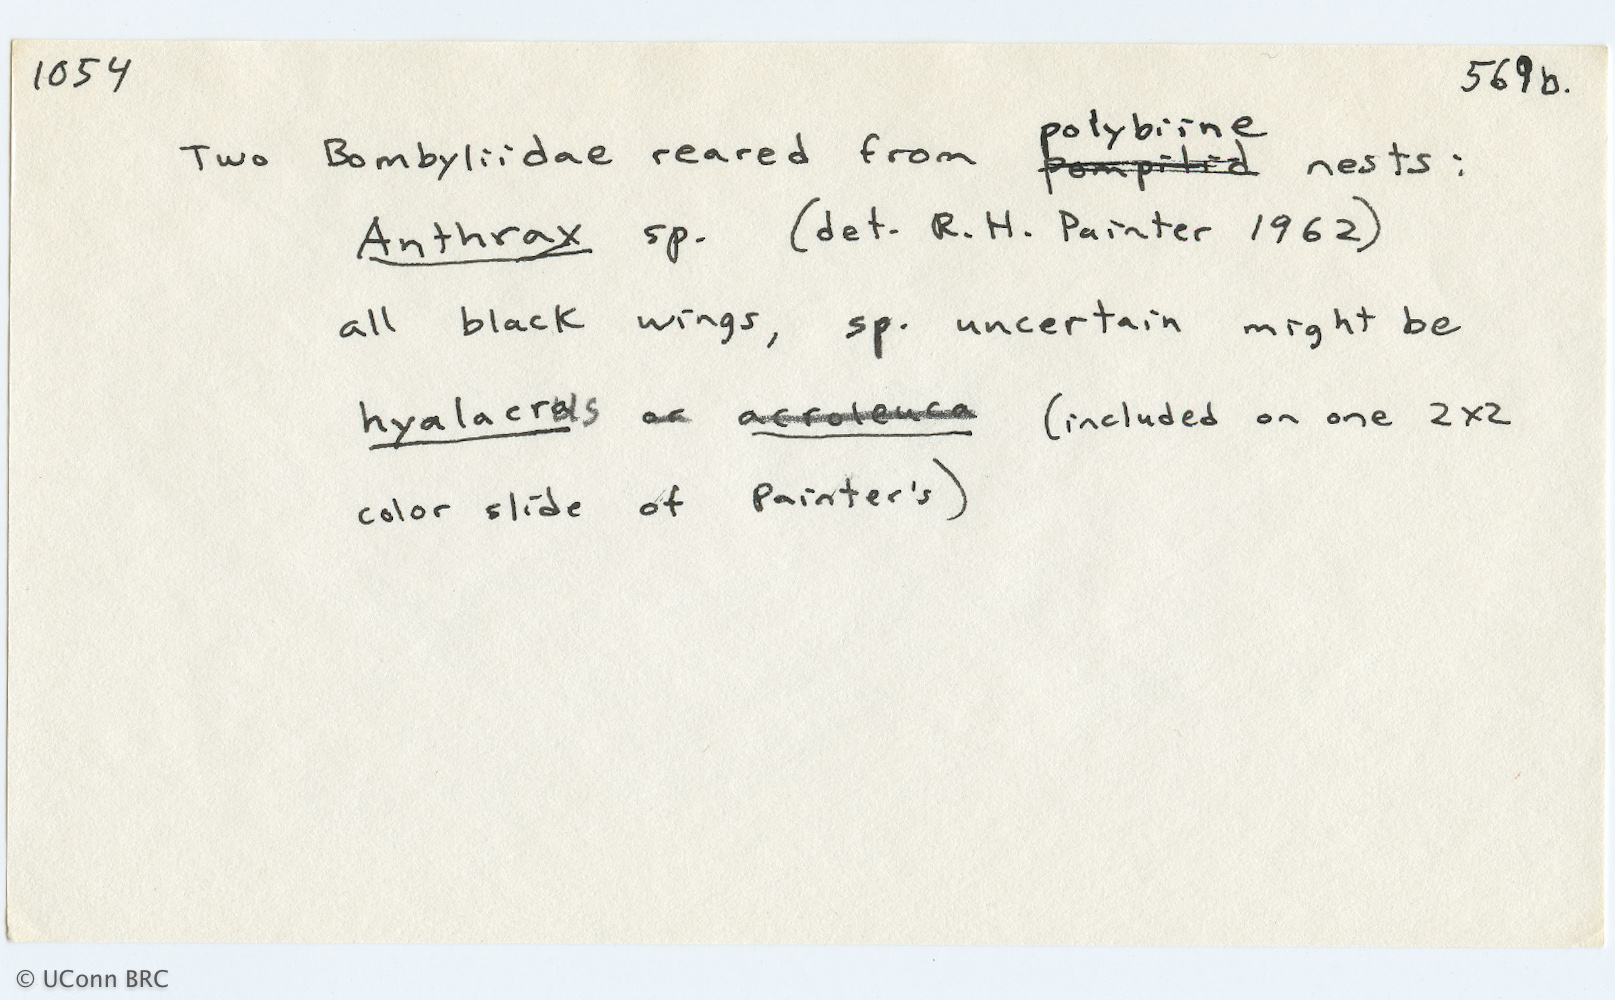 1054 569b.
polybiine
Two Bombyliidae reared from pompilid nests:
Anthrax sp. (det. R.H. Painter 1962)
all black wings, sp. uncertain might be
or acroleuca (included on one 2x2
color slide of Painter's)
© UConn BRC